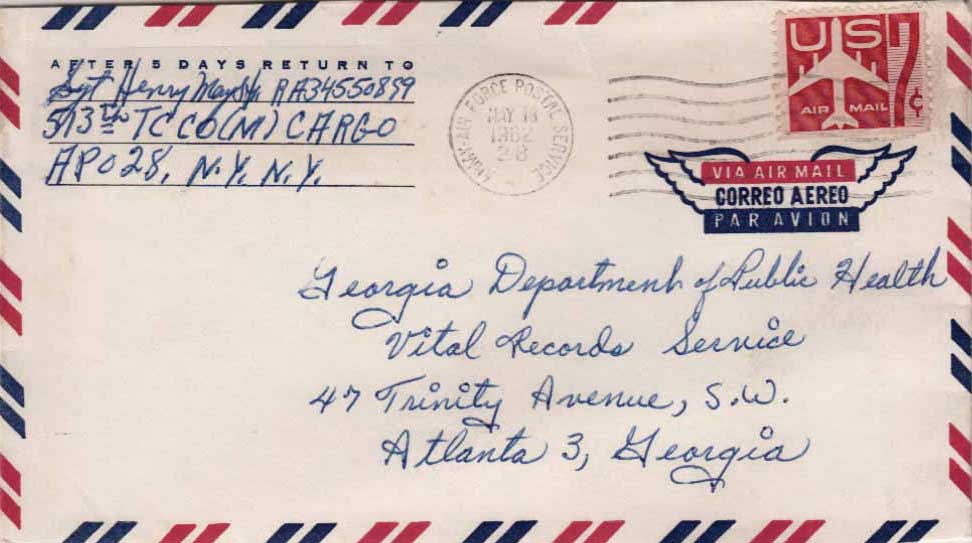 AFTER 5 DAYS RETURN TO
Sgt Henry RA34550899
513th TC CO (M) CARGO
APO 28, N.Y. N.Y.
ARMY-AIR FORCE POSTAL SERVICE
MAY
1962
28
US
AIR MAIL
7¢
VIA AIR MAIL
CORREO AEREO
PAR AVION
Georgia Department of Public Health
Vital Records Service
47 Trinity Avenue, S.W.
Atlanta 3, Georgia